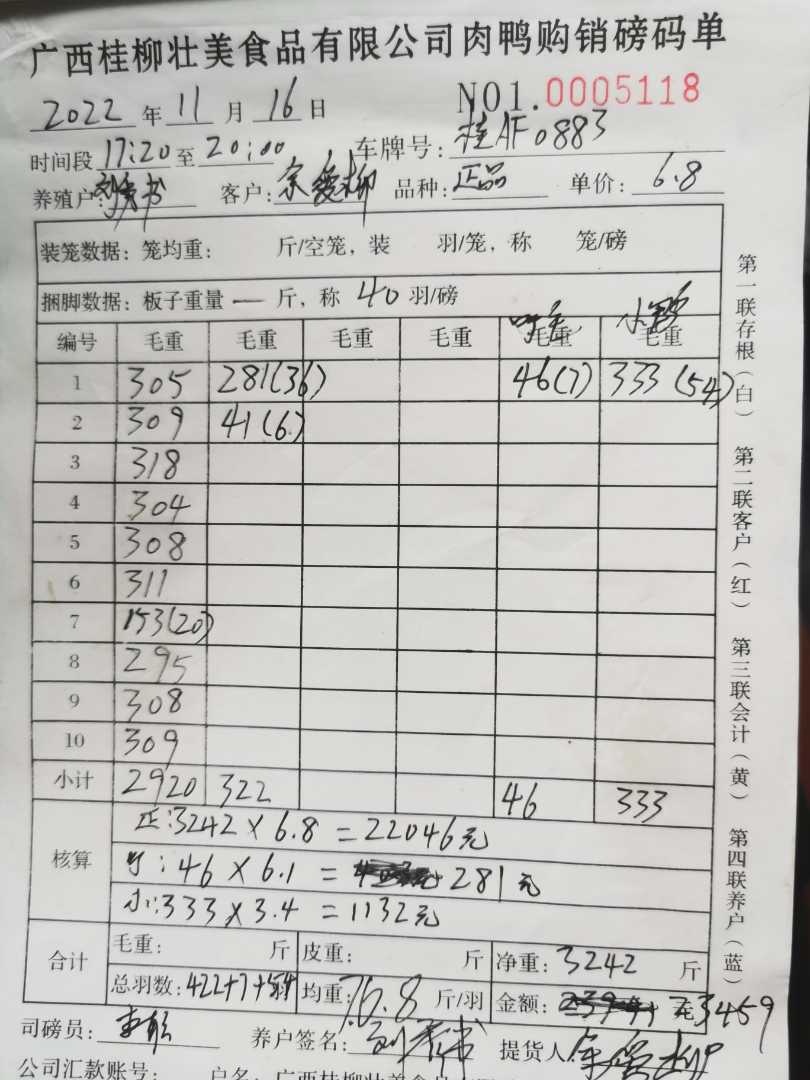 广西桂柳壮美食品有限公司肉鸭购销磅码单
2022 年 11 月 16 日 NO1.0005118
时间段 17:20 至 20:00 车牌号: 桂AF0883
养殖户: 客户: 品种: 正品 单价: 6.8
装笼数据: 笼均重: 斤/空笼, 装 羽/笼, 称 笼/磅
捆脚数据: 板子重量 — 斤, 称 40 羽/磅
编号 毛重 毛重 毛重 毛重 毛重 小 毛重
1 305 281(36) 46(7) 333(54)
2 309 41(6)
3 318
4 304
5 308
6 311
7 153(20)
8 295
9 308
10 309
小计 2920 322 46 333
核算 正:3242×6.8=22046元
46×6.1= 281元
小:333×3.4=1132元
合计 毛重: 斤 皮重: 斤 净重: 3242 斤
总羽数: 422+7+54 均重: 7.6.8 斤/羽 金额: 元 23459
司磅员: 养户签名: 提货人
公司汇款账号: 户名: 广西桂柳壮美食品有限
第一联存根(白) 第二联客户(红) 第三联会计(黄) 第四联养户(蓝)